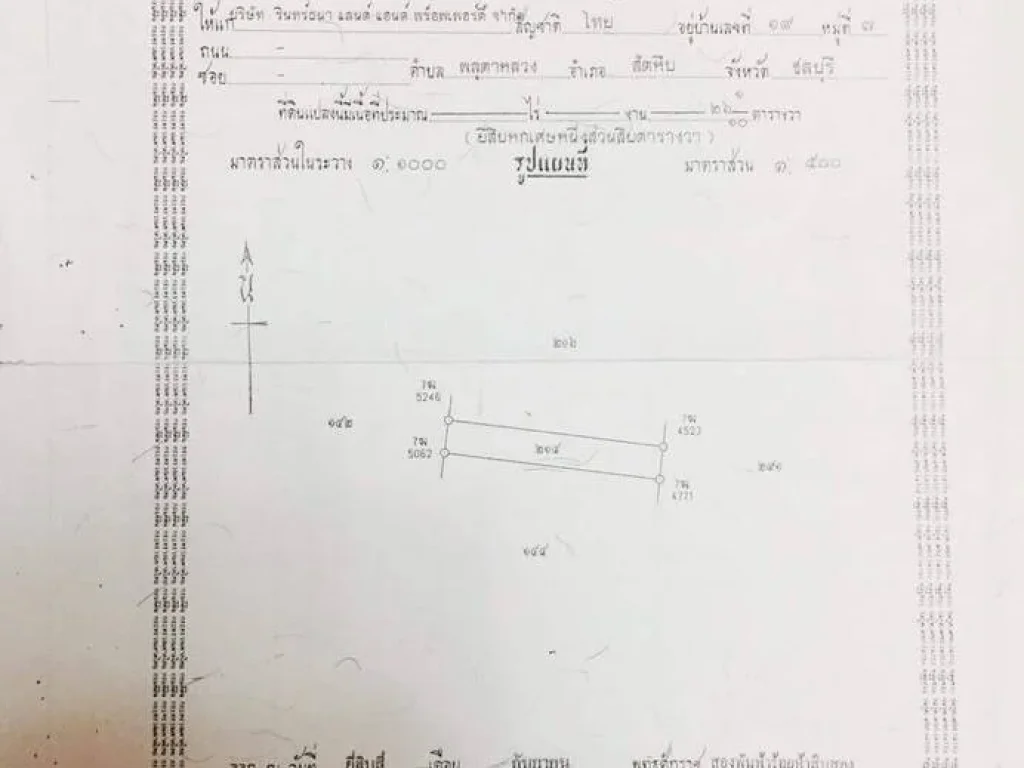 ให้แก่ บริษัท รินทร์ธนา แลนด์ แอนด์ พร็อพเพอร์ตี้ จำกัด สัญชาติ ไทย อยู่บ้านเลขที่ ๑๙ หมู่ที่ ๗
ถนน -
ซอย - ตำบล พลูตาหลวง อำเภอ สัตหีบ จังหวัด ชลบุรี
ที่ดินแปลงนี้มีเนื้อที่ประมาณ ไร่ งาน ๒๖ ๑/๑๐ ตารางวา
(ยี่สิบหกเศษหนึ่งส่วนสิบตารางวา)
มาตราส่วนในระวาง ๑:๑๐๐๐ รูปแผนที่ มาตราส่วน ๑:๕๐๐
น
๒๑๖
๗ฒ
5246
๑๔๒
๗ฒ
4523
๗ฒ
5062
๒๑๕
๒๕๑
๗ฒ
4771
๑๔๔
ณ วันที่ ยี่สิบสี่ เดือน กันยายน พุทธศักราช สองพันห้าร้อยห้าสิบสอง